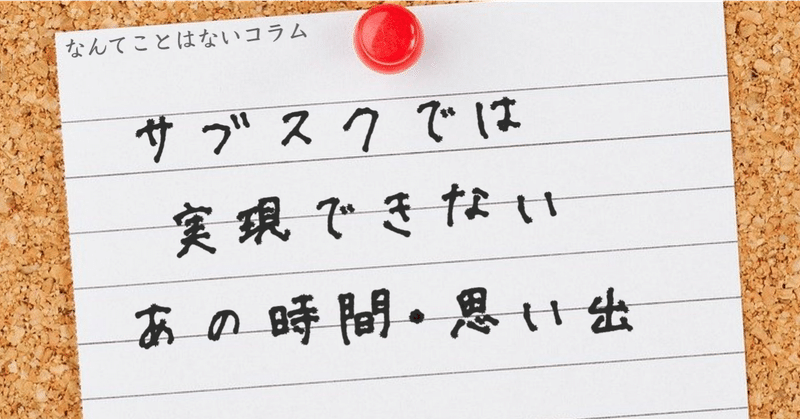 なんてことはないコラム
サブスクでは
実現できない
あの時間・思い出